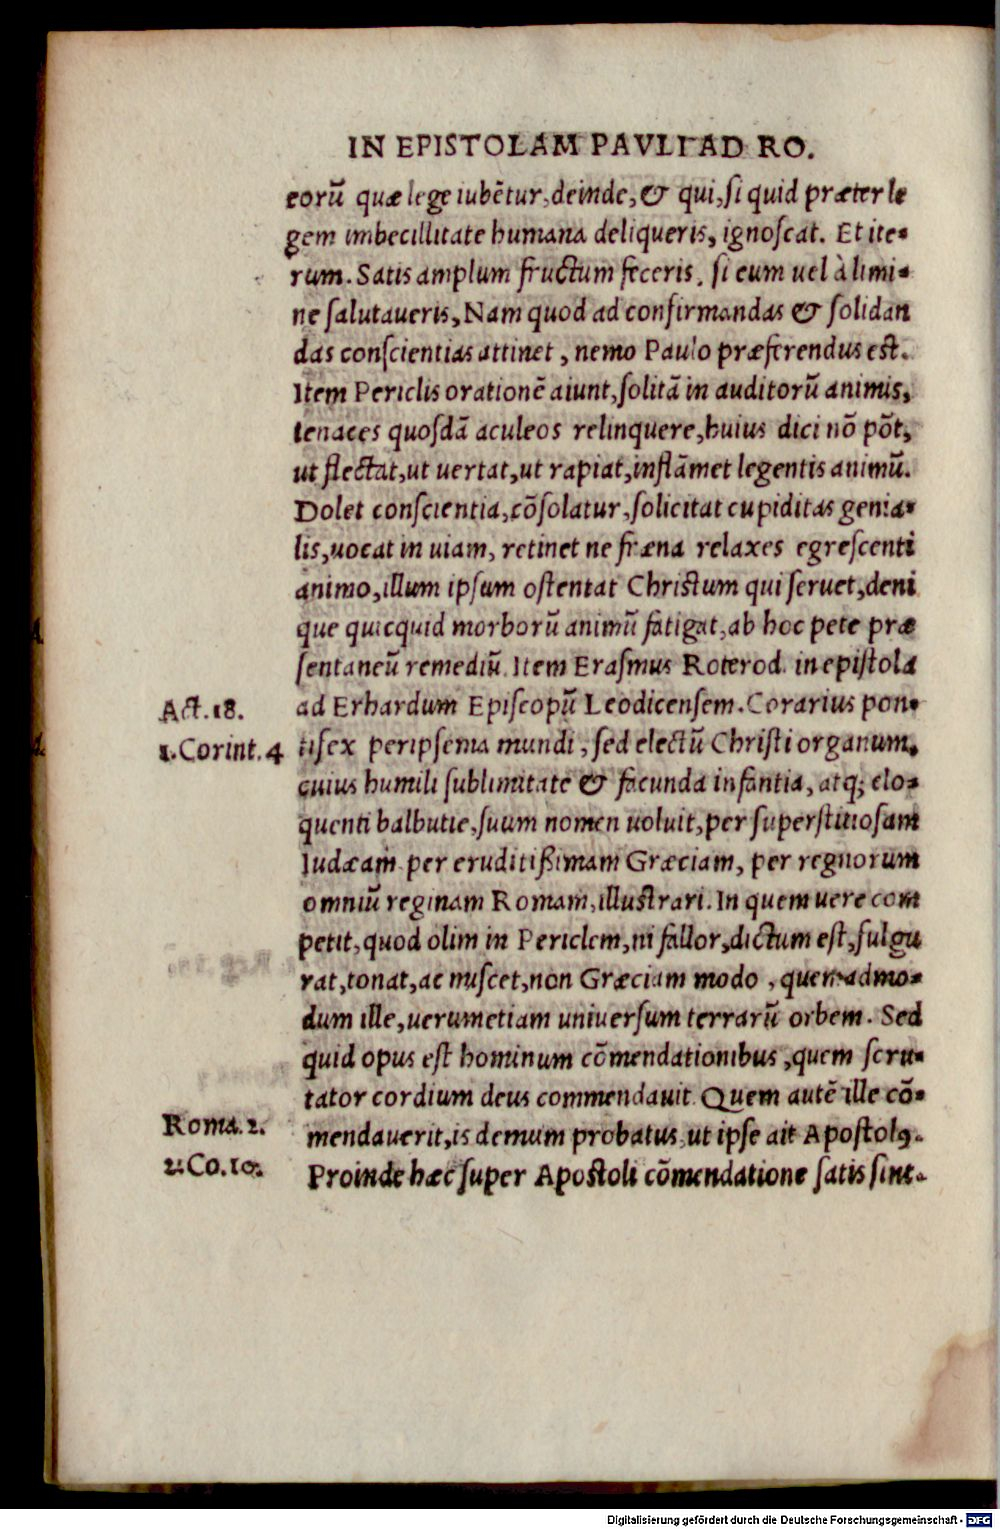 IN EPISTOLAM PAVLI AD RO.
eorũ quæ lege iubẽtur, deinde, & qui, si quid præter le
gem imbecillitate humana deliqueris, ignoscat. Et ite-
rum. Satis amplum fructum feceris, si eum uel à limi-
ne salutaueris, Nam quod ad confirmandas & solidan
das conscientias attinet, nemo Paulo præferendus est.
Item Periclis orationẽ aiunt, solitã in auditorũ animis,
tenaces quosdã aculeos relinquere, huius dici nõ põt,
ut flectat, ut uertat, ut rapiat, inflãmet legentis animũ.
Dolet conscientia, cõsolatur, solicitat cupiditas genia-
lis, uocat in uiam, retinet ne fræna relaxes egrescenti
animo, illum ipsum ostentat Christum qui seruet, deni
que quicquid morborũ animũ fatigat, ab hoc pete præ
sentaneũ remediũ. Item Erasmus Roterod. in epistola
ad Erhardum Episcopũ Leodicensem. Corarius pon-
Act. 18.
tifex peripsema mundi, sed electũ Christi organum,
1. Corint. 4
cuius humili sublimitate & facunda infantia, atq; elo-
quenti balbutie, suum nomen uoluit, per superstitiosam
Iudæam per eruditißimam Græciam, per regnorum
omniũ reginam Romam, illustrari. In quem uere com
petit, quod olim in Periclem, ni fallor, dictum est, fulgu
rat, tonat, ac miscet, non Græciam modo, quemadmo-
dum ille, uerumetiam uniuersum terrarũ orbem. Sed
quid opus est hominum cõmendationibus, quem scru-
tator cordium deus commendauit Quem autẽ ille cõ-
mendauerit, is demum probatus, ut ipse ait Apostolꝰ.
Roma. 2.
Proinde hæc super Apostoli cõmendatione satis sint.
2. Co. 10.
Digitalisierung gefördert durch die Deutsche Forschungsgemeinschaft - DFG